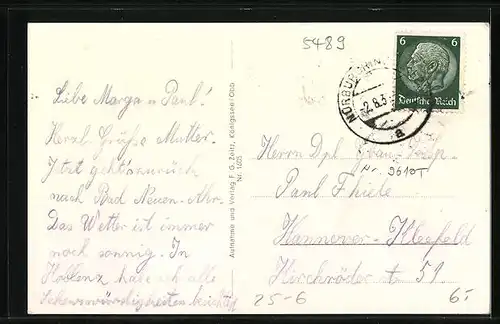 5489
Liebe Marga u Paul!
Herzl. Grüße Mutter.
Jtzt geht's zurück
nach Bad Neuen-Ahr.
Das Wetter ist immer
noch sonnig. In
Koblenz habe ich alle
Sehenswürdigkeiten besichtigt
Aufnahme und Verlag F. G. Zeitz, Königssee/Obb.
Nr. 1605
6 6
Deutsches Reich
NÜRBURG
2.8.3
a
Herrn Dpl.
Nr. 9610T
Paul Thiele
Hannover-Kleefeld
Kirchröder st 51
25-6
6,-